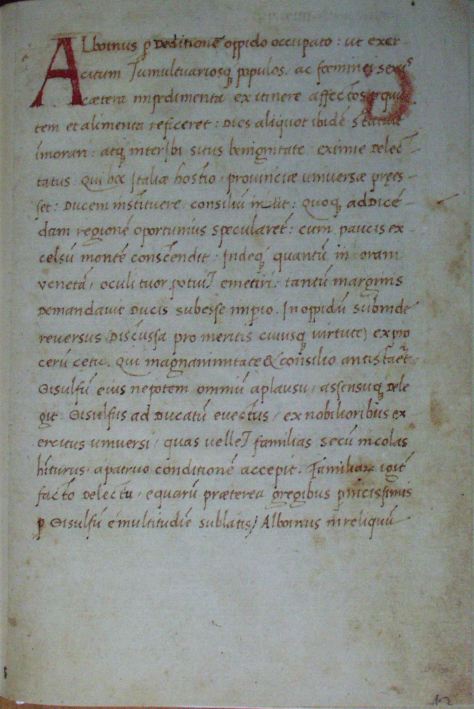 Alboinus p deditionē oppido occupato: ut exer-
citum Tumultuariosq; populos, ac fœminei sexus
cætera impedimenta ex itinere affectos
tem et alimenta reficeret: Dies aliquot ibidē statuit
īmorari: atq; inter ibi situs benignitate eximie delec-
tatus. Qui hoc Italiæ hostio, provinciæ universæ præes-
set: Ducem instituere consiliū init: quoq; ad Dicē-
dam regionē oportunius specularet: cum paucis ex-
celsū montē conscendit. Indeq; quantū in oram
venetā, oculi emetiri: tantū marginis
Demandavit Ducis subesse impio. In oppidū subinde
reversus (Discussa pro meritis cuiusq; virtute) ex pro
cerū cetu, qui magnanimitate & consilio antistaret
Gisulfū eius nepotem omniū aplausu, assensuq; dele
git. Gisulfus ad Ducatū evectus, ex nobilioribus ex
ercitus universi, quas vellet familias secū incolas
hīturus, a patruo conditionē accepit. Familiar igit
facto delectu, equarū præterea gregibus pnicissimis
p Gisulfū e multitudīe sublatis, Alboinus in reliquū